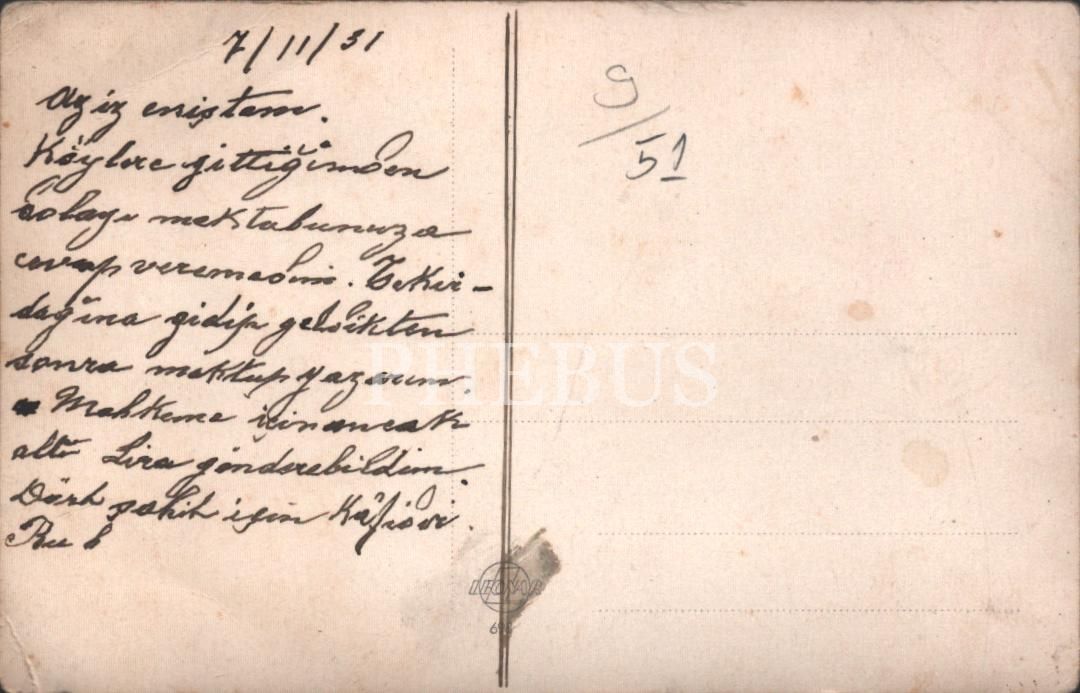 7/11/31
Aziz eniştem.
Köylere gittiğimden
dolayı mektubunuza
cevap veremedim. Tekir-
dağına gidip geldikten
sonra mektup yazarım.
Mahkeme için ancak
altı Lira gönderebildim.
Dört şahit için Kâfidir.
Bu
9/51
PHEBUS
LEONAR